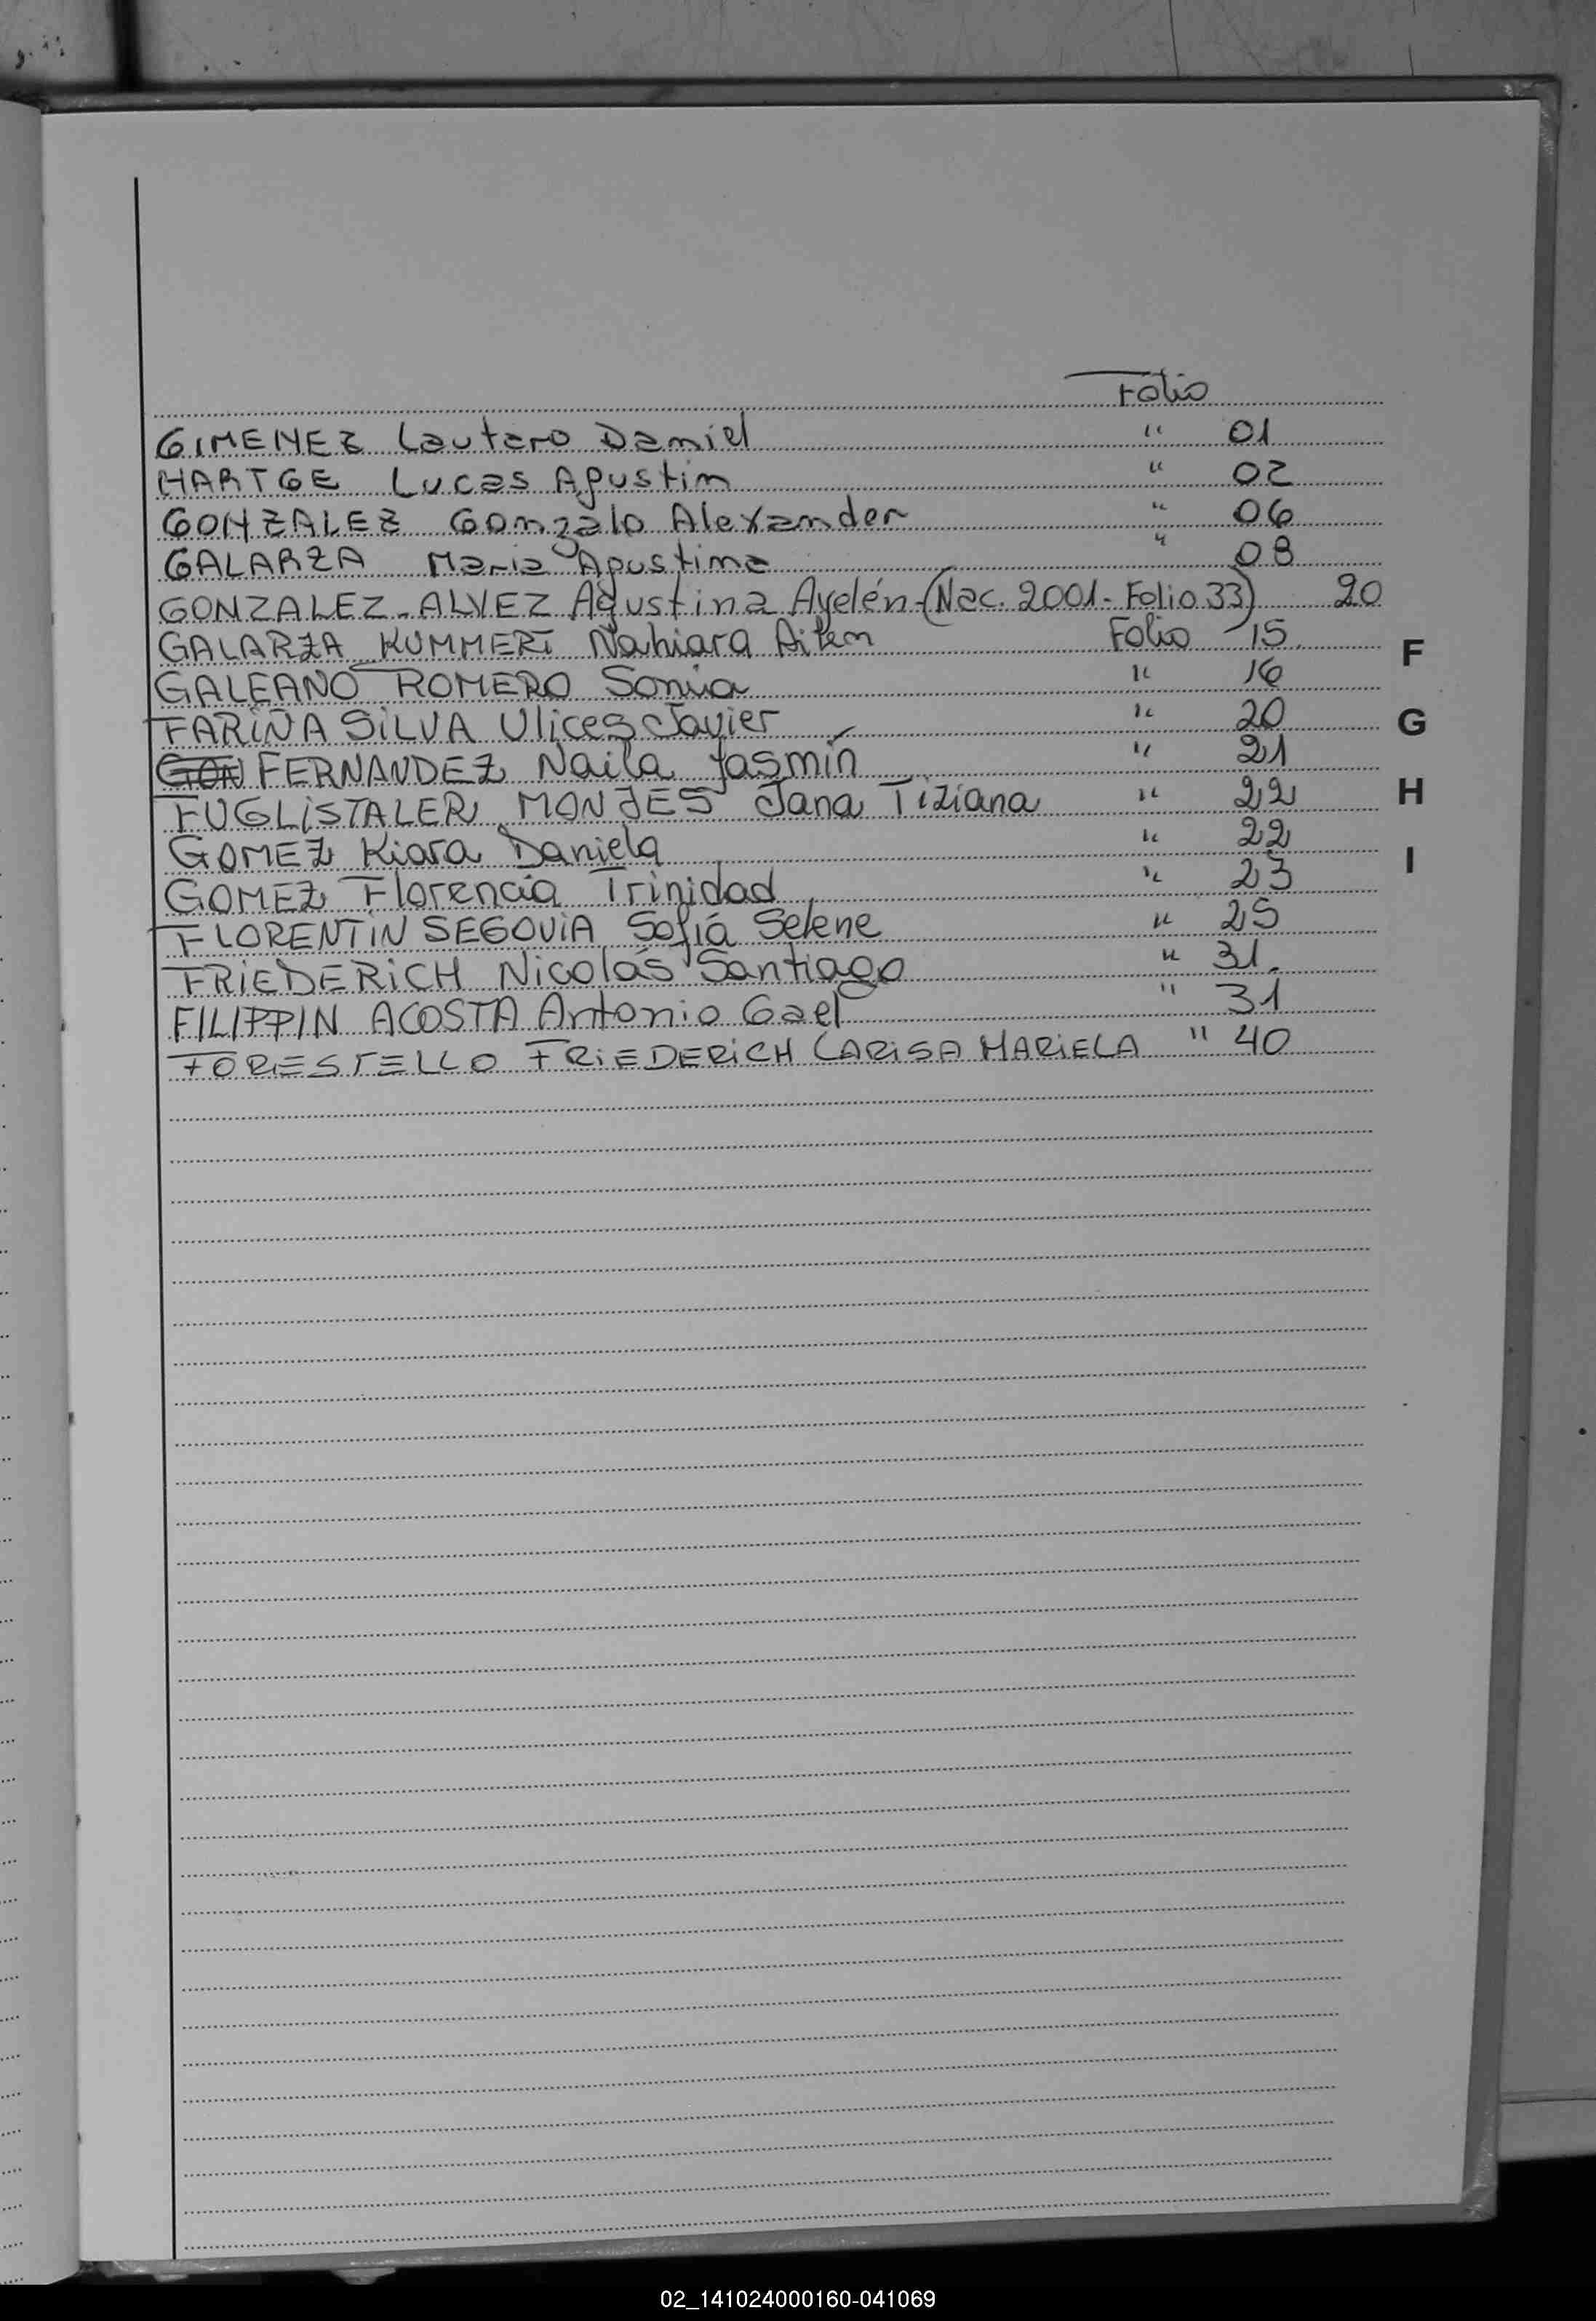 Folio
GIMENEZ Lautaro Daniel " 01
HARTGE Lucas Agustin " 02
GONZALEZ Gonzalo Alexander " 06
GALARZA Maria Agustina " 08
GONZALEZ-ALVEZ Agustina Ayelén-(Nac. 2001- Folio 33) 20
GALARZA KUMMERT Nahiara Aitem Folio 15.
GALEANO ROMERO Sonia " 16
FARIÑA SILVA Ulices Javier " 20
GON FERNANDEZ Naila Jasmín " 21
FUGLISTALER MONJES Jana Tiziana " 22
GOMEZ Kiara Daniela " 22
GOMEZ Florencia Trinidad " 23
FLORENTIN SEGOVIA Sofiá Selene " 25
FRIEDERICH Nicolás Santiago " 31.
FILIPPIN ACOSTA Antonio Gael " 31
FORESTELLO FRIEDERICH LARISA MARIELA " 40
F
G
H
I
02_141024000160-041069